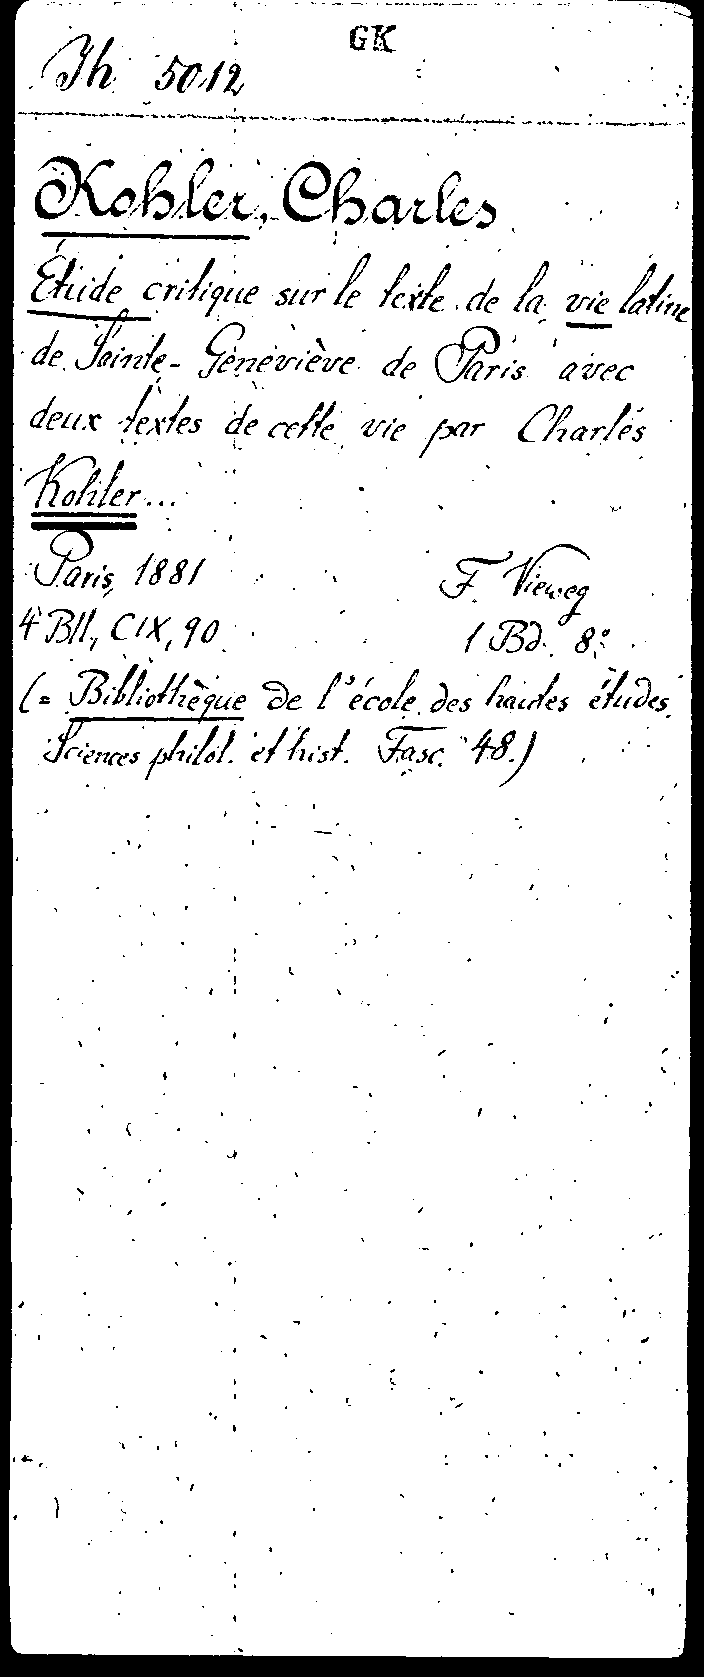 GK
Th 5012
Kohler, Charles
Étude critique sur le texte de la vie latine
de Sainte-Geneviève de Paris avec
deux textes de cette vie par Charles
Kohler...
Paris, 1881 F. Vieweg
4 Bll., CIX, 90 1 Bd. 8°
(= Bibliothèque de l'école des hautes études.
Sciences philol. et hist. Fasc. 48.)